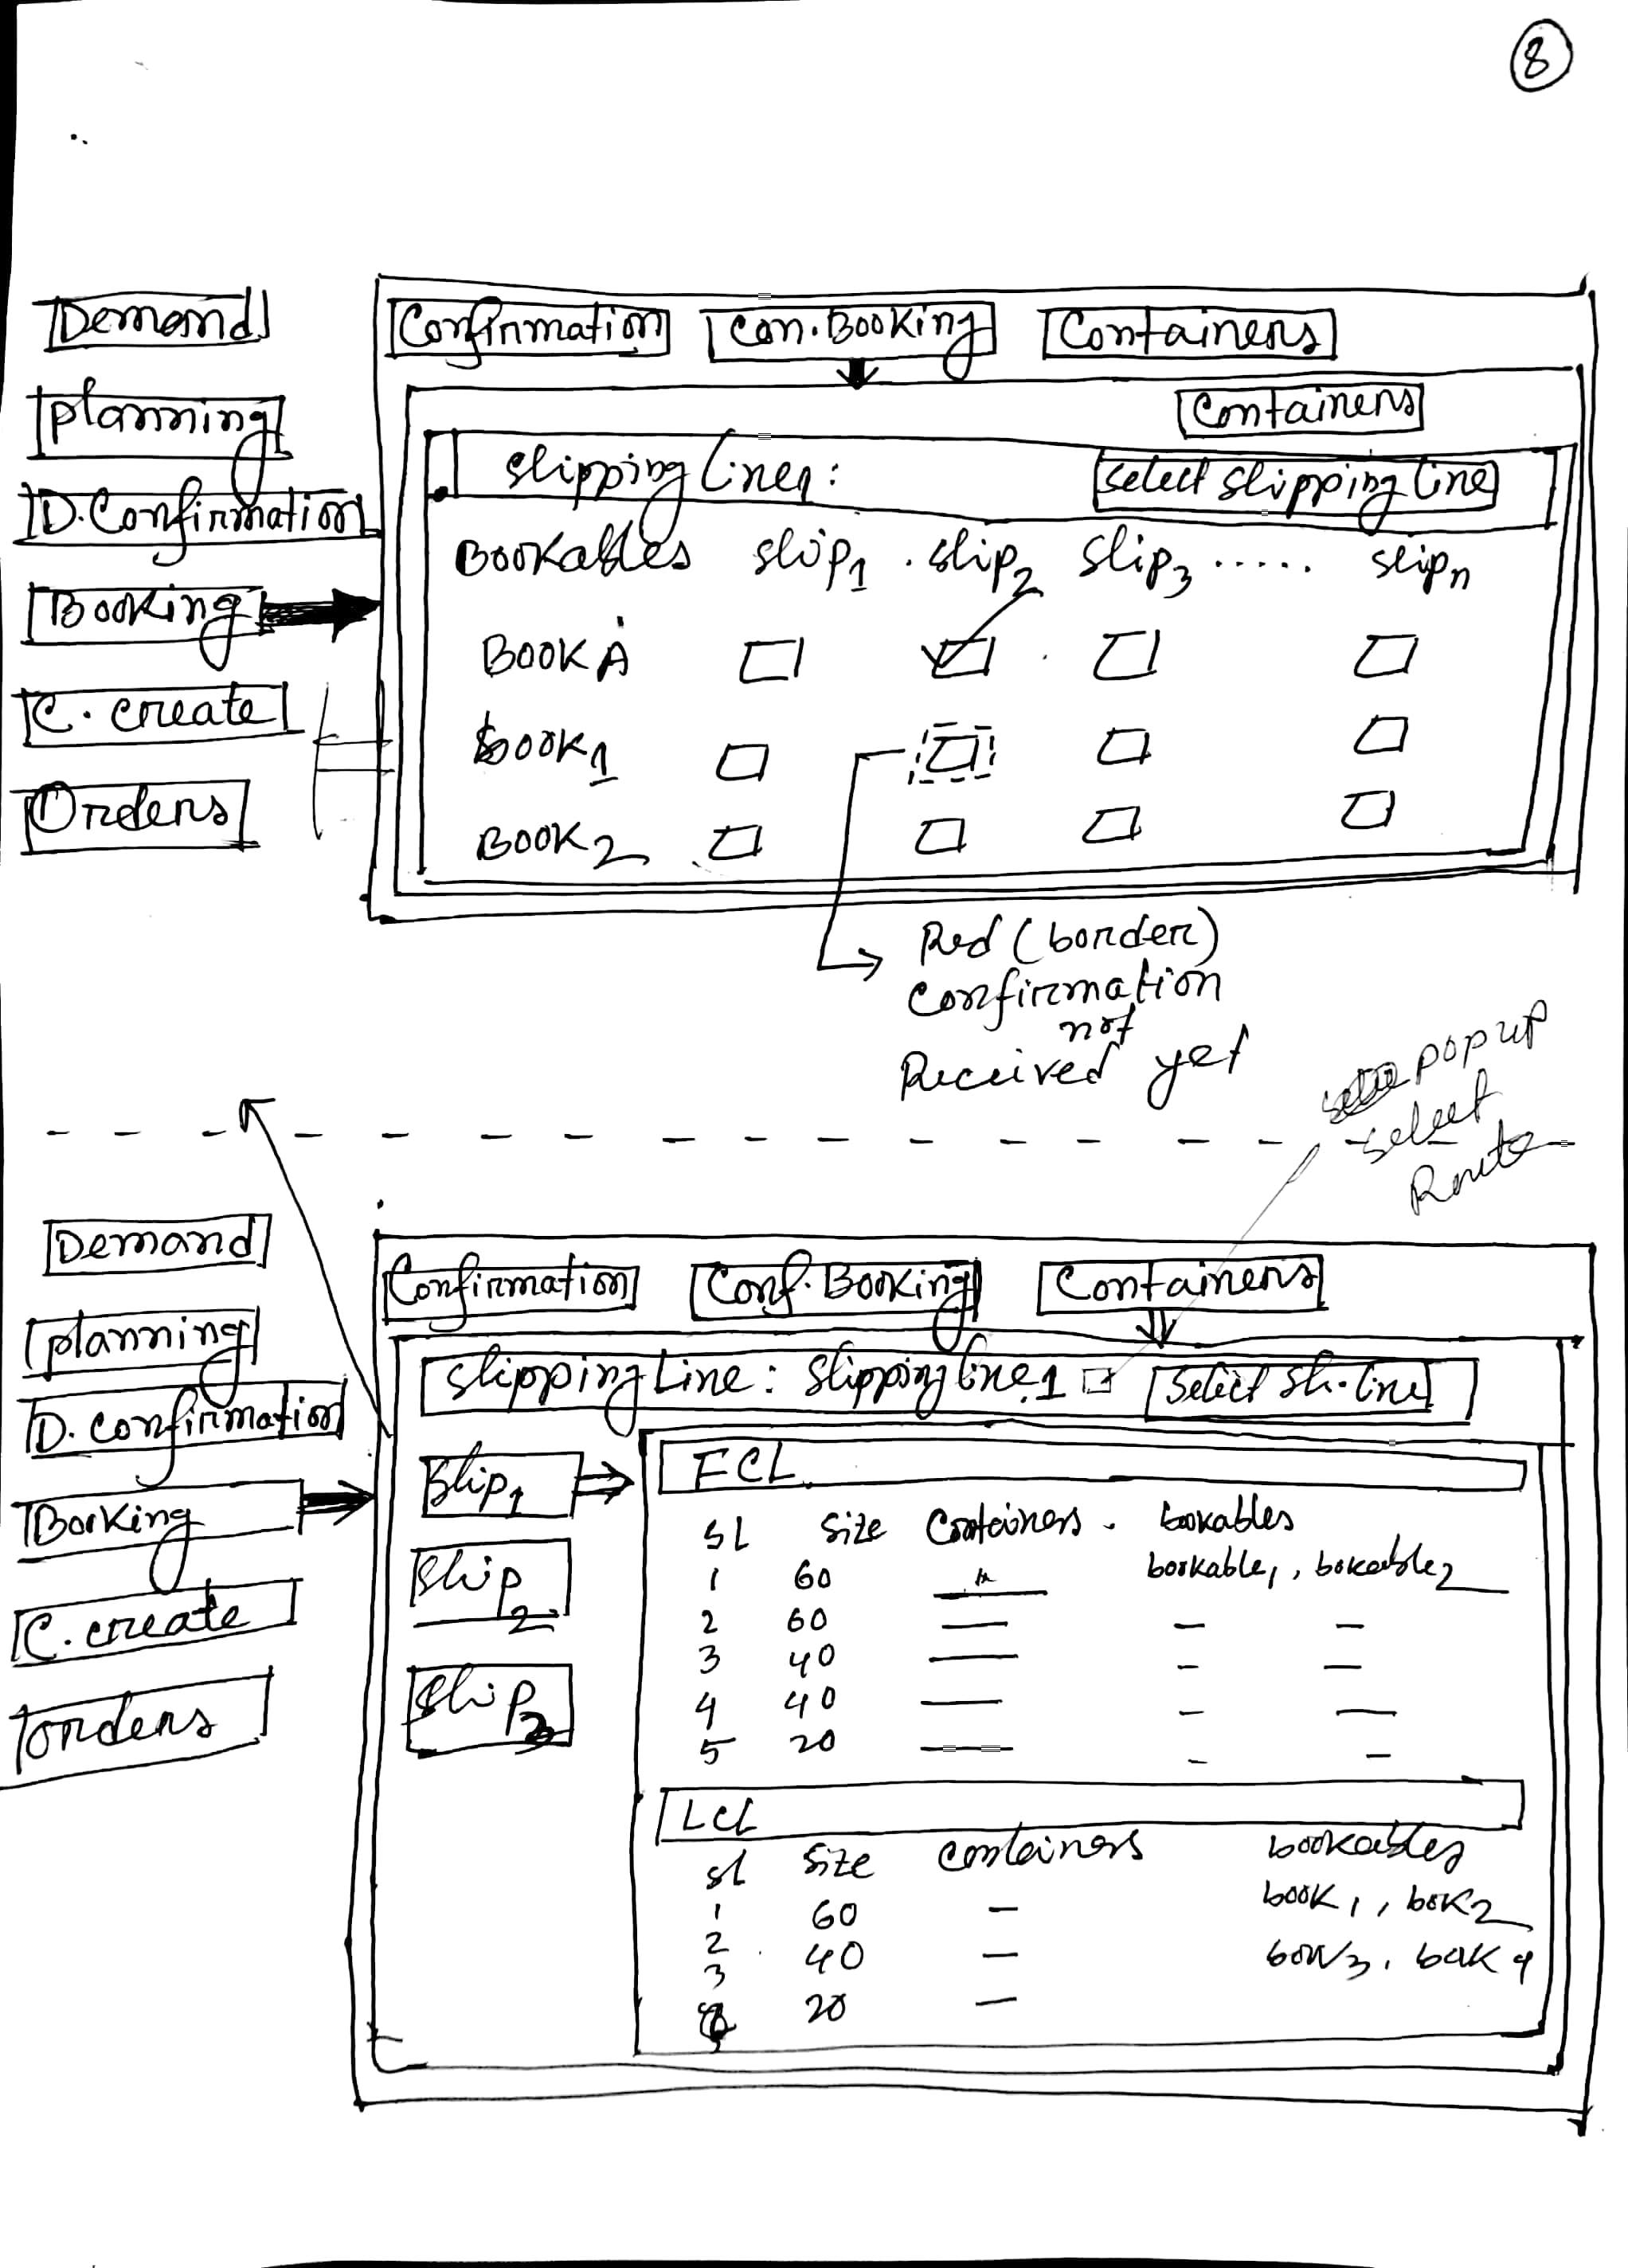 8
Demand
Planning
D. Confirmation
Booking
C. create
Orders
Confirmation Con. Booking Containers
Containers
Shipping Line1: Select Shipping Line
Bookables Ship1 Ship2 Ship3 ..... Shipn
BOOK A
BOOK1
BOOK2
Red (border)
Confirmation
not
Received yet
popup
select
Route
Demand
Planning
D. confirmation
Booking
C. create
orders
Confirmation Conf. Booking Containers
Shipping Line: Shipping line 1 Select Sh. line
Ship1
Ship2
Ship3
FCL
SL Size Containers bookables
1 60 bookable1, bokeable2
2 60 — — —
3 40 — — —
4 40 — — —
5 20 — — —
LCL
sl Size Containers bookables
1 60 — book1, bok2
2 40 —
3 20 —